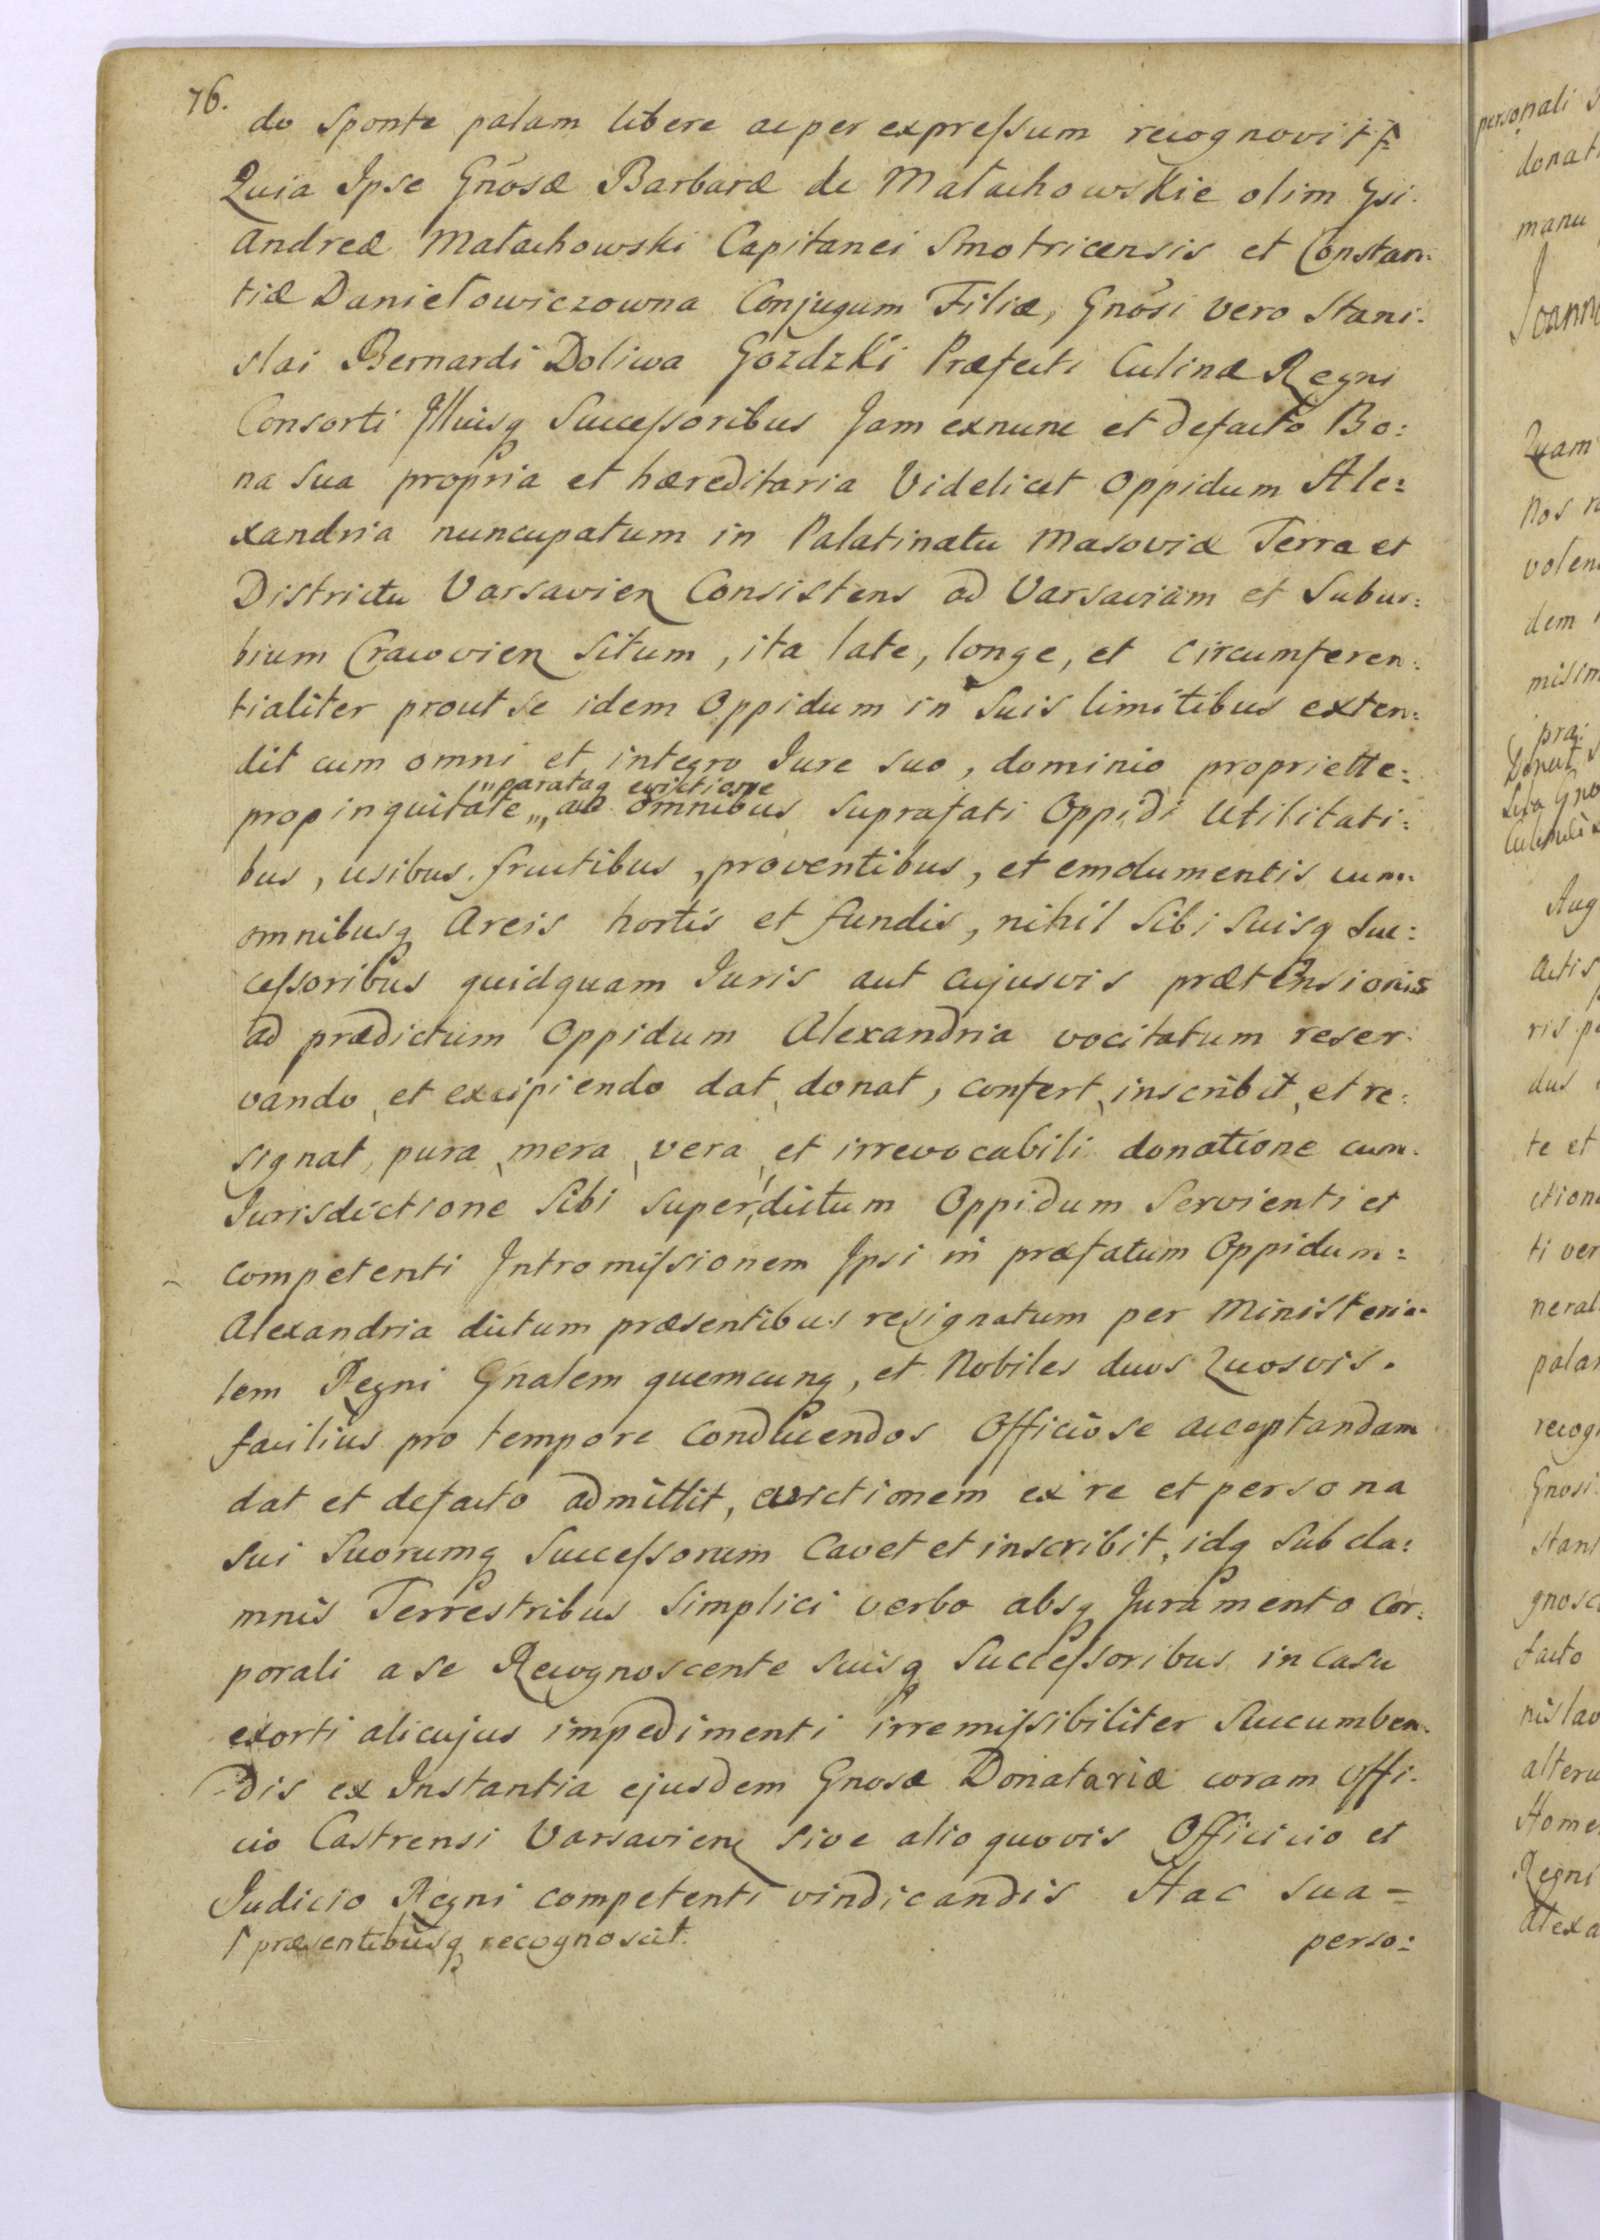 76.
do Sponte palam libere ac per expressum recognovit
Quia Ipse Gnosæ Barbaræ de Małachowskie olim Gsi.
Andreæ Małachowski Capitanei Smotricensis et Constan:
tiæ Daniełowiczowna Conjugum Filiæ, Gnosi vero Stani:
slai Bernardi Doliwa Gozdzki Præfecti Culinæ Regni
Consorti Illuisq Successoribus Jam exnunc et defacto Bo:
na sua propria et hæreditaria Videlicet Oppidum Ale:
xandria nuncupatum in Palatinatu Masoviæ Terra et
Districtu Varsavien Consistens ad Varsaviam et Subur:
bium Cracovien situm, ita late, longe, et circumferen:
tialiter prout se idem Oppidum in suis limitibus exten:
dit cum omni et integro Jure suo, dominio propriette:
„parataq evictione
propinquitate „ ac omnibus suprafati Oppidi Utilitati:
bus, usibus. fructibus, proventibus, et emolumentis cum
omnibusq Areis hortis et fundis, nihil sibi suisq Suc:
cessoribus quidquam Juris aut cujusvis prætensionis
ad prædictum Oppidum Alexandria vocitatum reser:
vando, et excipiendo dat, donat, confert, inscribit, et re:
signat, pura, mera, vera, et irrevocabili donatione cum
Jurisdictione sibi super dictum Oppidum Servienti et
competenti Intromissionem Ipsi in præfatum Oppidum:
Alexandria dictum præsentibus resignatum per Ministeria:
lem Regni Gnalem quemcunq, et Nobiles duos Quosvis.
facilius pro tempore conducendos Officiose acceptandam
dat et defacto admittit, evictionem ex re et persona
sui Suorumq Successorum Cavet et inscribit, idq Sub da:
mnis Terrestribus simplici verbo absq Juramento Cor:
porali a se Recognoscente suisq Successoribus in casu
exorti alicujus impedimenti irremissibiliter Succumben:
dis ex Instantia ejusdem Gnosæ Donatariæ coram Offi:
cio Castrensi Varsavien sive alio quovis Officicio et
Judicio Regni competenti vindicandis Hac sua =
præsentibusq recognoscit.
perso:
personali
donat
manu
Joann
Quam
Nos
volen
dem
misim
præ:
Donat
Gno
Aug
Actis
ris
dus
te et
ction
ti ver
neral
palam
recog
Gnosi
stani
gnosc
facto
nislao
alteru
Home
Regni
Alexa